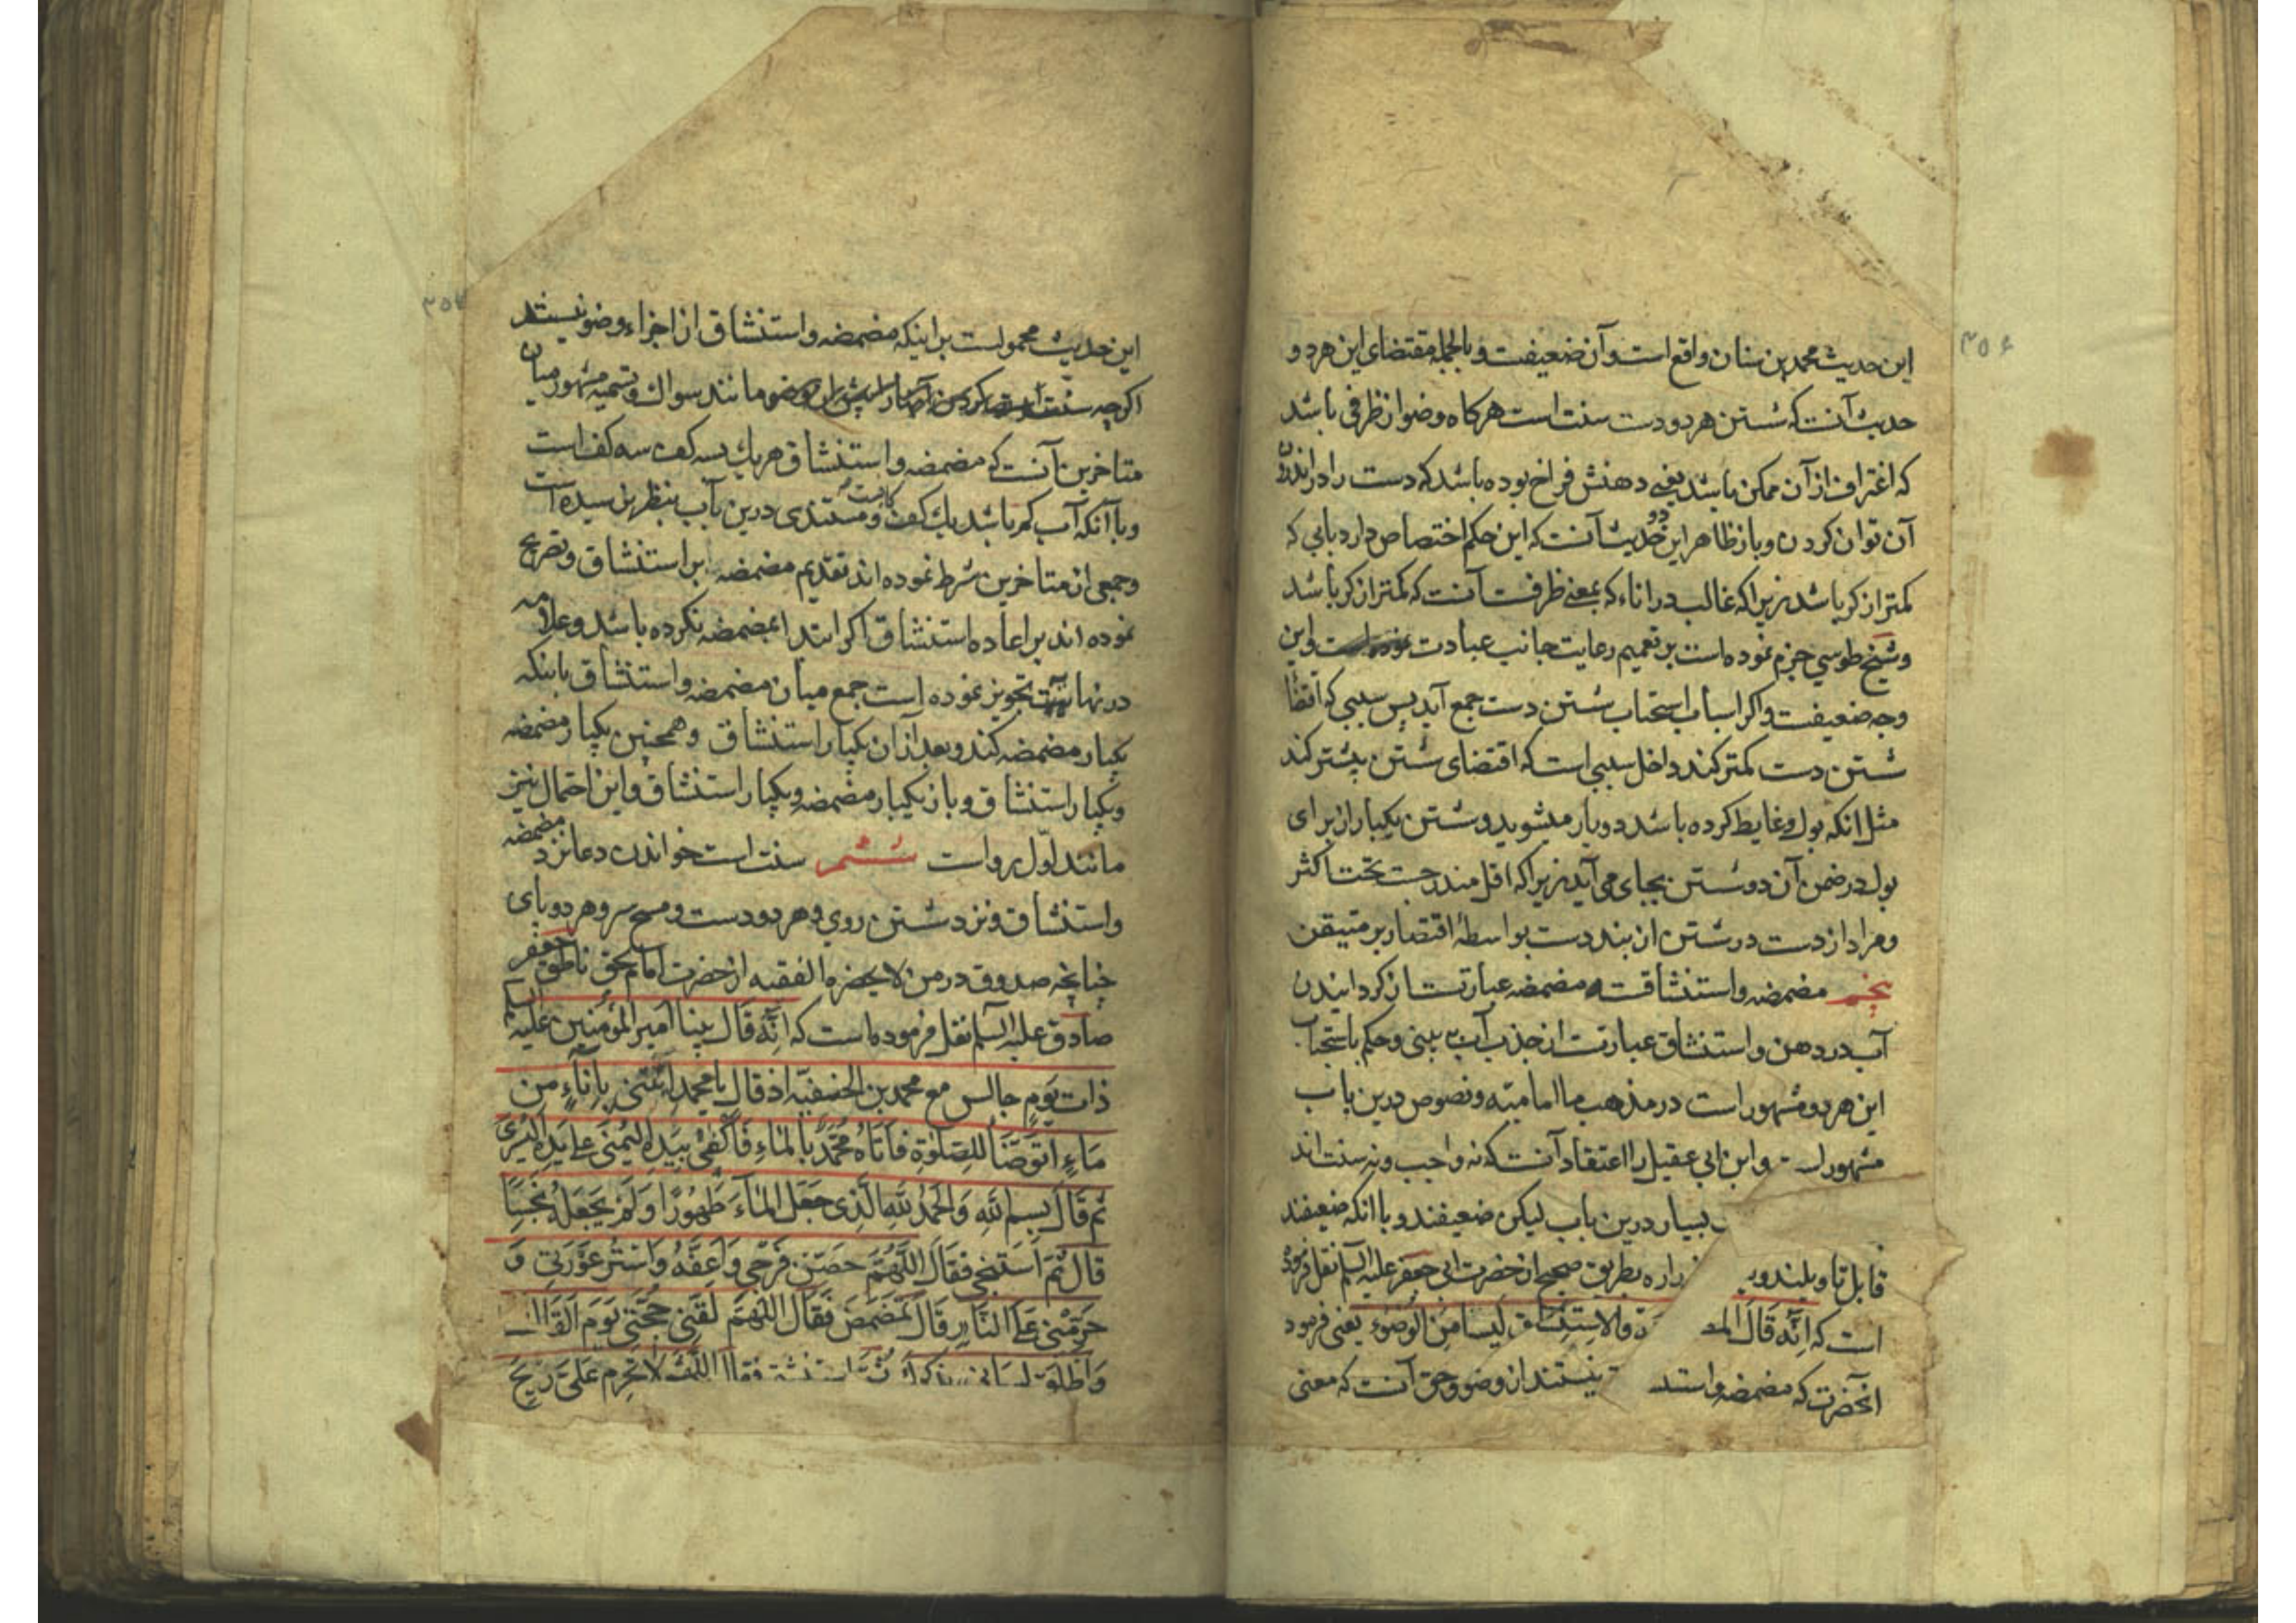 ۳۵۶
این حدیث محمد بن سنان واقع است و آن ضعیفست و بالجمله مقتضای این هر دو
حدیث آنست که شستن هر دو دست سنت است هر کاه وضو از ظرفی باشد
که اغتراف از آن ممکن باشد یعنی دهنش فراخ بوده باشد که دست را در اندرون
آن توان کردن و باز ظاهر این دو حدیث آنست که این حکم اختصاص دارد بابی که
کمتر از کر باشد زیرا که غالب در اناء که بمعنی ظرفست آنست که کمتر از کر باشد
و شیخ طوسی جزم نموده است بر تعمیم رعایت جانب عبادت و این
وجه ضعیفست و اکر اسباب استحباب شستن دست جمع آید پس سببی که اقتضا
شستن دست کمتر کند داخل سببی است که اقتضای شستن پشتر کند
مثل انکه بول و غایط کرده باشد دو بار میشوید و شستن یکبار از برای
بول در ضمن آن دو شستن بجای می آید زیرا که اقل مندرجست تحت اکثر
و مراد از دست در شستن از بند دست بواسطهٔ اقتصار بر متیقن
پنجم مضمضه و استنشاقست مضمضه عبارتست از کردانیدن
آب در دهن و استنشاق عبارتست از جذب آب به بینی و حکم باستحباب
این هر دو مشهور است در مذهب ما امامیه و نصوص درین باب
مشهور و ابن ابی عقیل را اعتقاد آنست که نه واجب و نه سنت اند
بسیار درین باب لیکن ضعیفند و با انکه ضعیفند
قابل تاویلند زراره بطریق صحیح از حضرت ابی جعفر علیه السلم نقل فرموده
است که انه قال و الاستنشاق لیسا من الوضوء یعنی فرمود
انحضرت که مضمضه نیستند از وضو و حق آنست که معنی
۳۵۷
این حدیث محمولست بر اینکه مضمضه و استنشاق از اجزاء وضو نیستند
اکرچه سنت است کردن وضو مانند سواک و تسمیه مشهور میان
متاخرین آنست که مضمضه و استنشاق هر یک بسه کف سه کف است
و با آنکه آب کم باشد یک کف کافیست و مستندی درین باب بنظر نرسیده است
و جمعی از متاخرین شرط نموده اند تقدیم مضمضه بر استنشاق و تصریح
نموده اند بر اعاده استنشاق اکر ابتدا بمضمضه نکرده باشد و علامه
در نهایت تجویز نموده است جمع میان مضمضه و استنشاق باینکه
یکبار مضمضه کند و بعد از آن یکبار استنشاق و همچنین یکبار مضمضه
و یکبار استنشاق و باز یکبار مضمضه و یکبار استنشاق و این احتمال نیز
مانند اول رواست ششم سنت است خواندن دعا نزد مضمضه
و استنشاق و نزد شستن روی و هر دو دست و مسح سر و هر دو پای
چنانچه صدوق در من لا یحضره الفقیه از حضرت امام بحق ناطق جعفر
صادق علیه السلم نقل فرموده است که انه قال بینا امیر المؤمنین علیه السلم
ذات یوم جالس مع محمد بن الحنفیة اذ قال یا محمد ائتنی باناء من
ماء اتوضا للصلوة فاتاه محمد بالماء فاکفی بیده الیمنی علی یده الیسری
ثم قال بسم الله و الحمد لله الذی جعل الماء طهورا و لم یجعله نجسا
قال ثم استنجی فقال اللهم حصن فرجی و اعفه و استر عورتی و
حرمنی علی النار قال تمضمض فقال اللهم لقنی حجتی یوم القاک
و اطلق لسانی بذکرک ثم استنشق فقال اللهم لا تحرم علی ریح